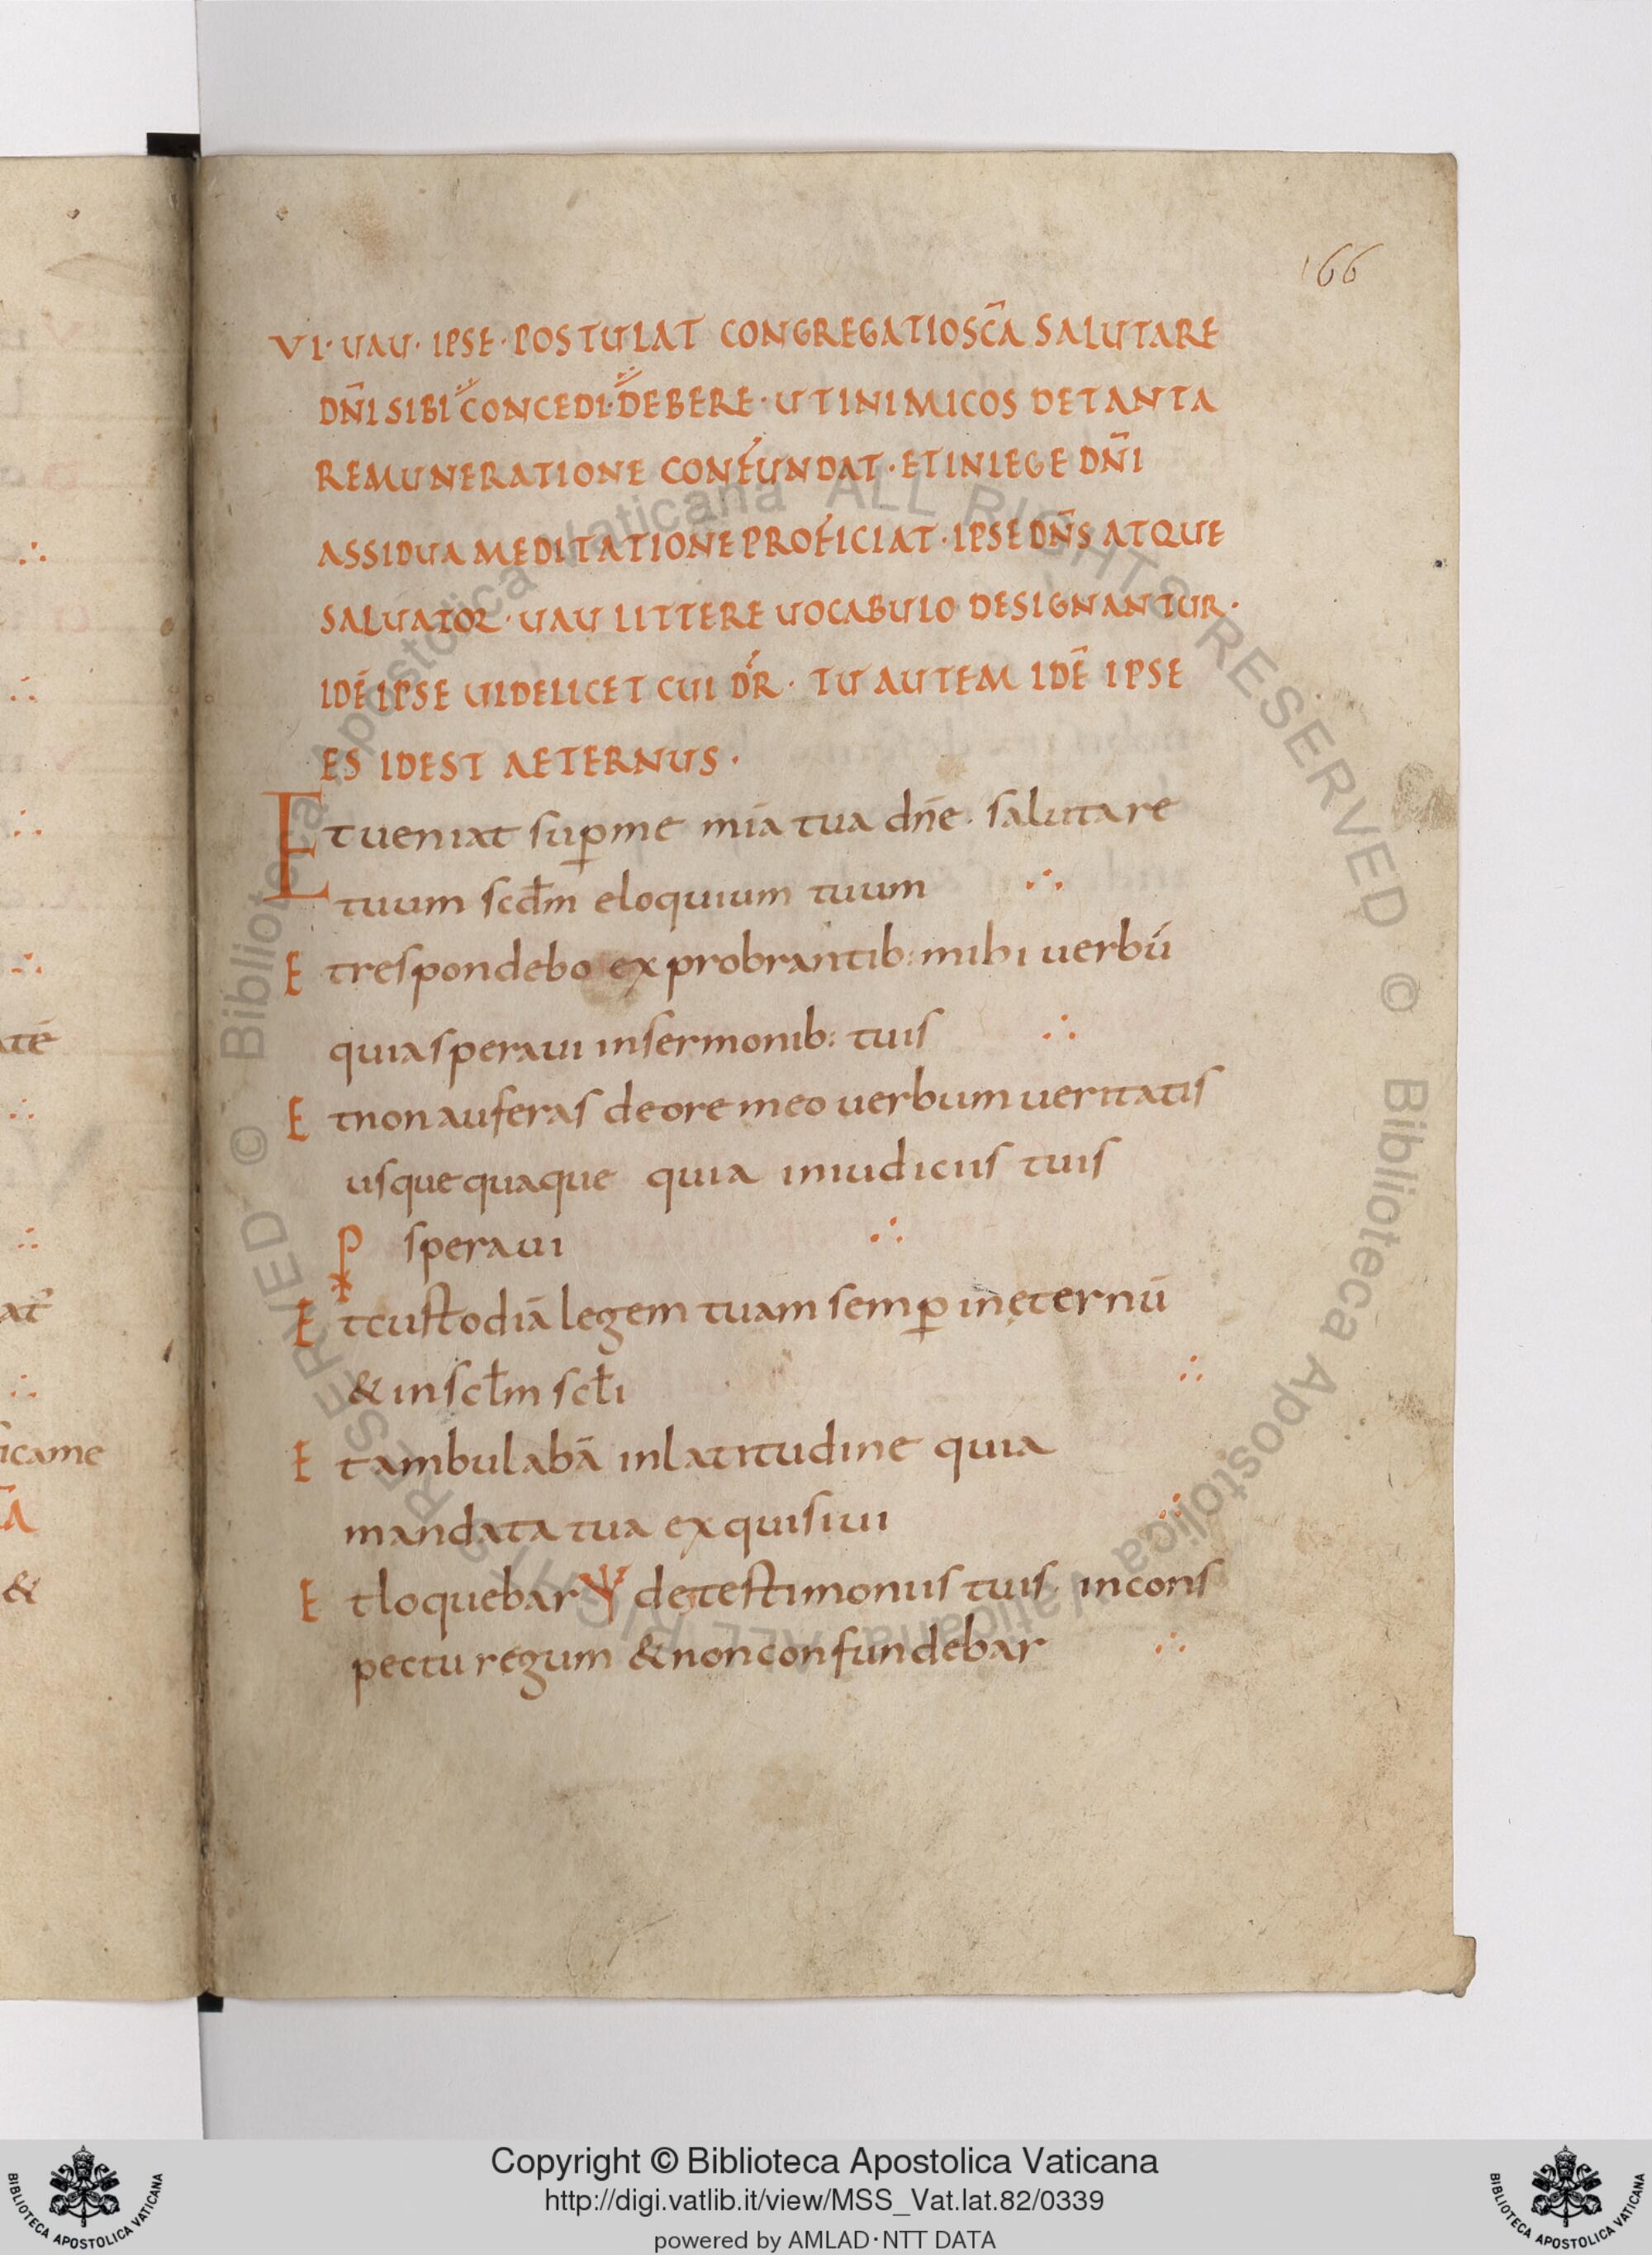 166
VI · UAU · IPSE · POSTULAT CONGREGATIO SC̄A SALUTARE
DN̄I SIBI CONCEDI · DEBERE · UT INIMICOS DE TANTA
REMUNERATIONE CONFUNDAT · ET IN LEGE DN̄I
ASSIDUA MEDITATIONE PROFICIAT · IPSE DN̄S ATQUE
SALUATOR · UAU LITTERE UOCABULO DESIGNANTUR ·
IDĒ IPSE UIDELICET CUI DR̄ · TU AUTEM IDĒ IPSE
ES IDEST AETERNUS ·
Et ueniat sup̄ me mīa tua dn̄e · salutare
tuum scd̄m eloquium tuum ∴
Et respondebo exprobrantib: mihi uerbū
quia speraui in sermonib: tuis ∴
Et non auferas de ore meo uerbum ueritatis
usquequaque quia in iudiciis tuis
P speraui ∴
Et custodiā legem tuam semp̄ in ęternū
& in scl̄m scl̄i ∴
Et ambulabā in latitudine quia
mandata tua exquisiui ∴
Et loquebar de testimoniis tuis · in cons
pectu regum & non confundebar ∴
atē
at
icame
&
Copyright © Biblioteca Apostolica Vaticana
http://digi.vatlib.it/view/MSS_Vat.lat.82/0339
powered by AMLAD · NTT DATA
BIBLIOTECA APOSTOLICA VATICANA
BIBLIOTECA APOSTOLICA VATICANA
© Biblioteca Apostolica Vaticana ALL RIGHTS RESERVED © Biblioteca Apostolica Vaticana ALL RIGHTS RESERVED